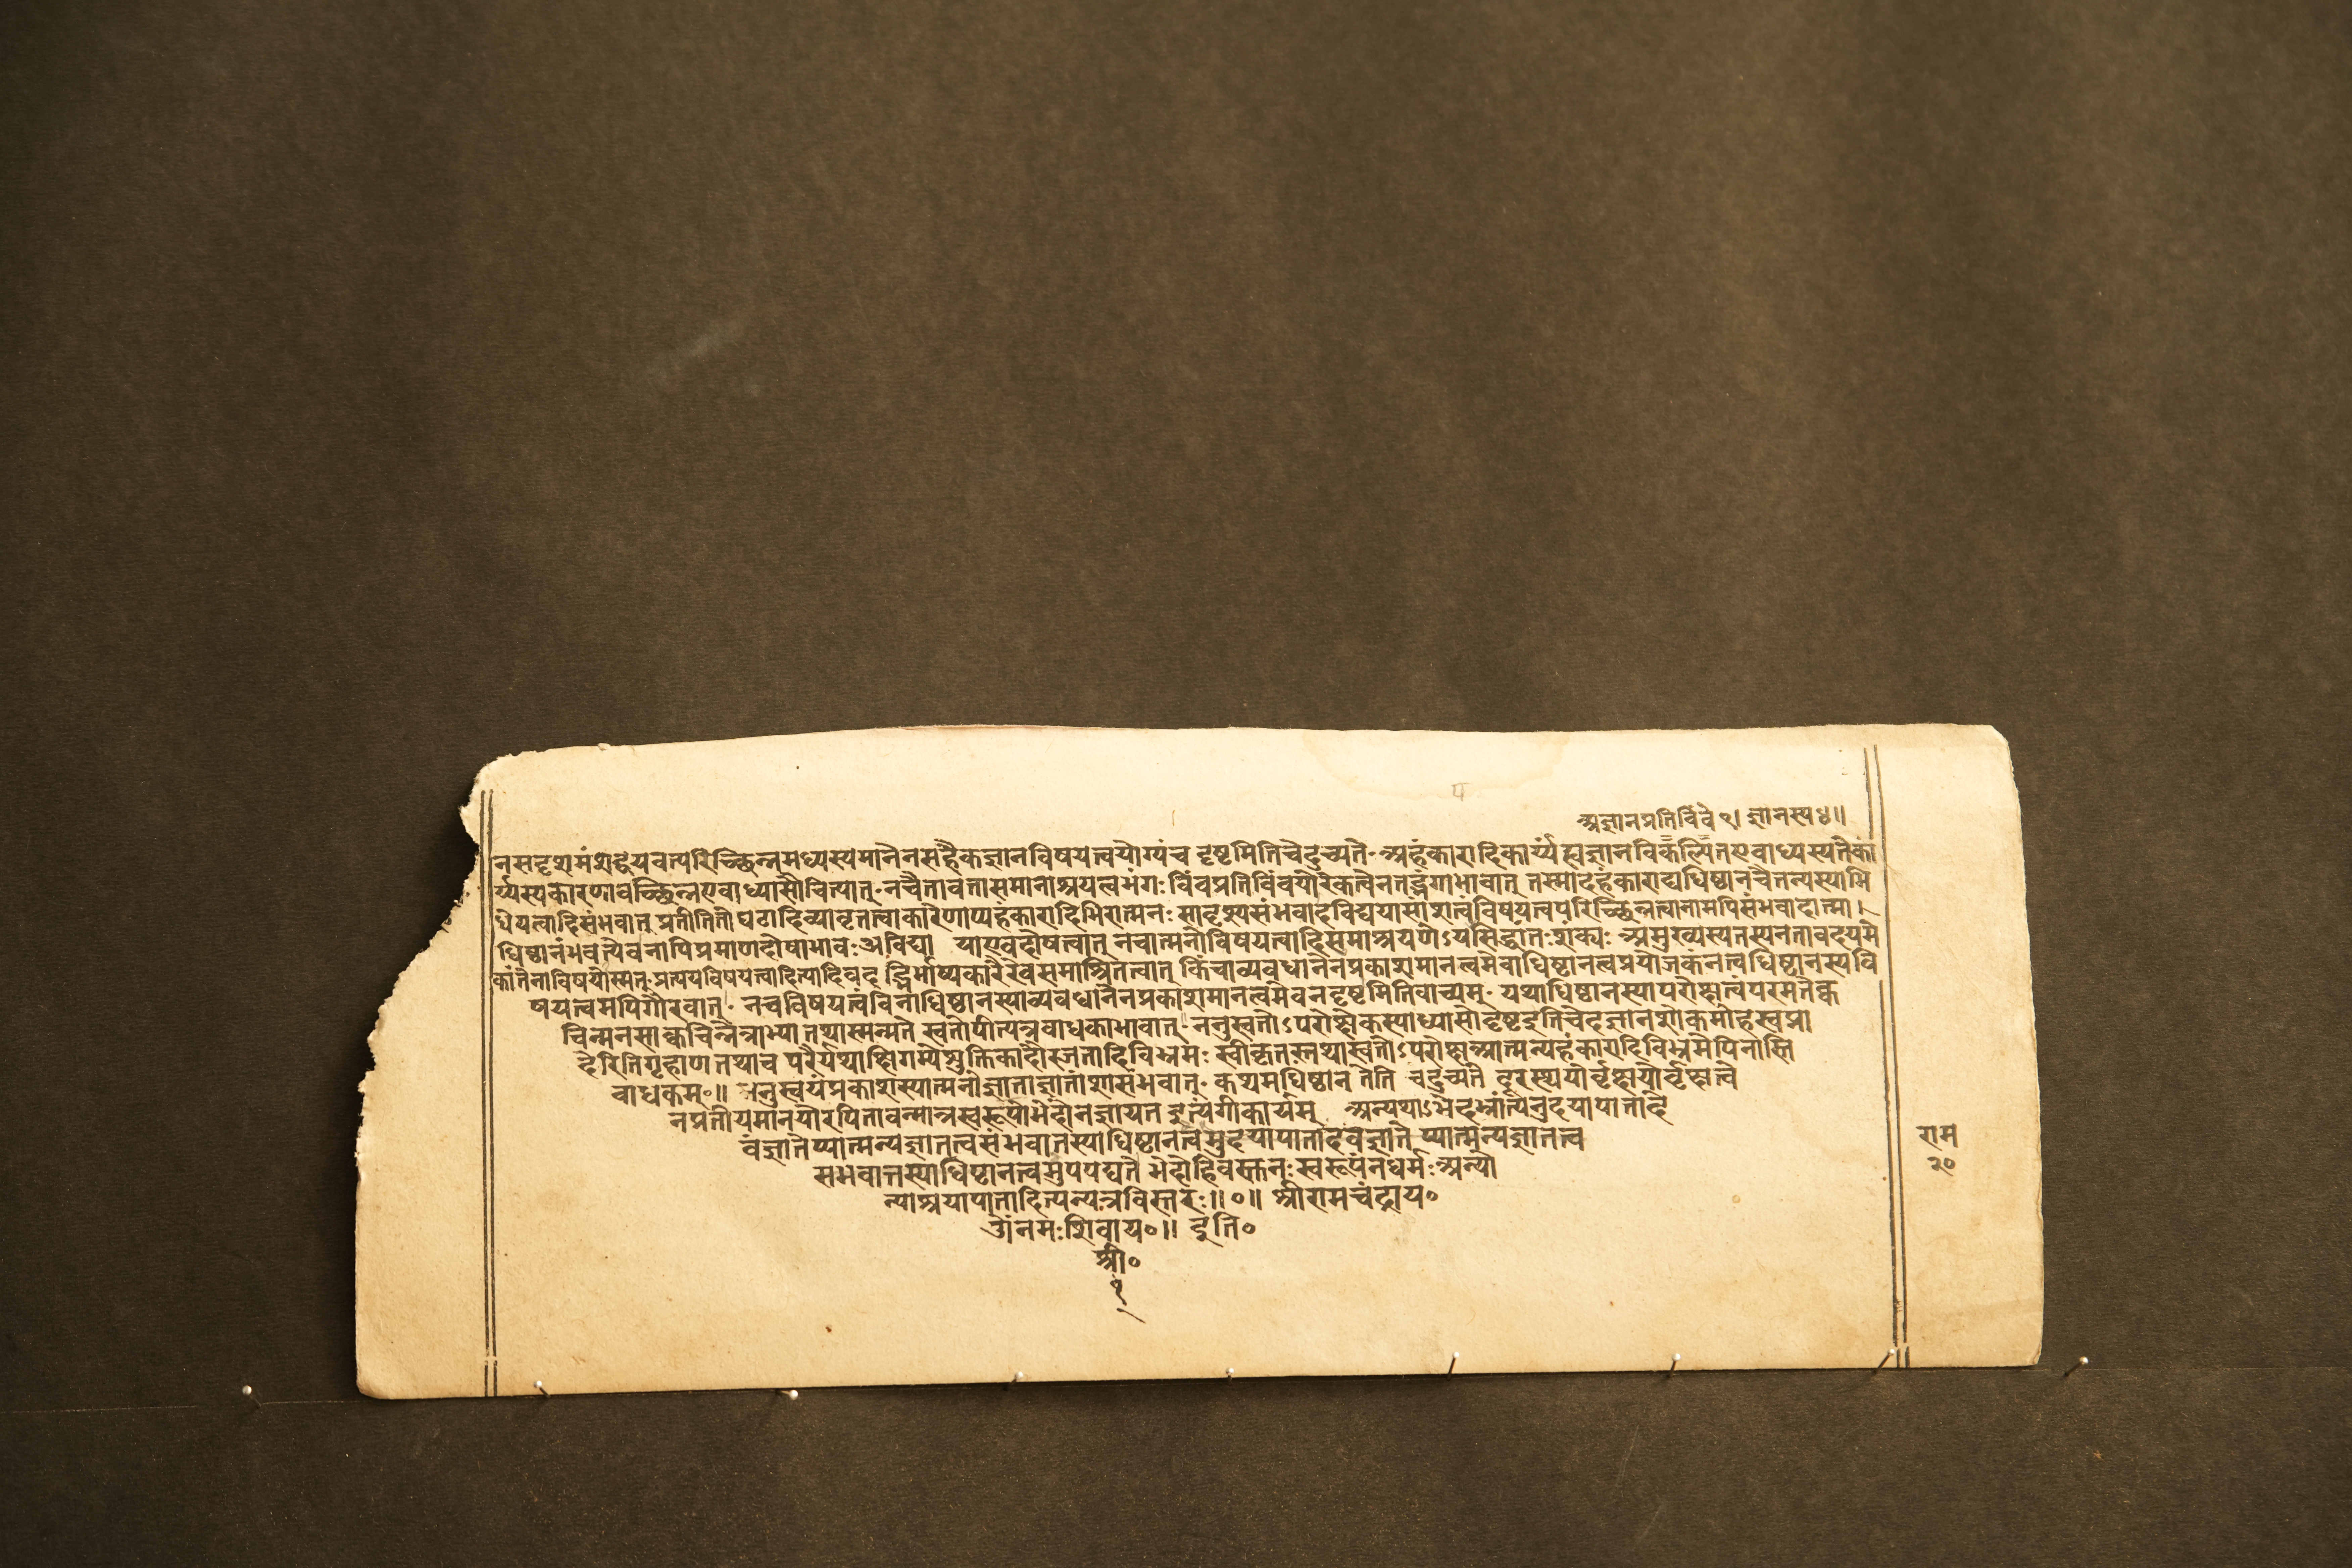 ५
अज्ञानप्रतिबिंबे १। ज्ञानस्य ४॥
नसदृशमंशद्वयवत्परिच्छिन्नमध्यस्यमानेनसहैकज्ञानविषयत्वयोग्यंच दृष्टमितिचेदुच्यते॰अहंकारादिकार्य्यह्यज्ञानविकल्पितएवाध्यस्यतेका
र्य्यस्यकारणावच्छिन्नएवाध्यासौचित्यात्॰नचैतावतासमानाश्रयत्वभंगः बिंबप्रतिबिंबयोरेकत्वेनतद्भंगाभावात् तस्मादहंकाराद्यधिष्ठानचैतन्यस्याभि
धेयत्वादिसंभवात् प्रतीतितोघटादिव्यावृतत्वाकारेणाप्यहंकारादिभिरात्मनः सादृश्यसंभवादविद्ययासांशत्वंविषयत्वपरिच्छिन्नत्वानामपिसंभवादात्मा।
धिष्ठानंभवत्येवनापिप्रमाणदोषाभावः अविद्या याएवदोषत्वात् नचात्मनोविषयत्वादिसमाश्रयणेऽपसिद्धांतःशक्यः अमुख्यस्यतस्यनतावदयमे
कांतेनाविषयोस्मत्॰प्रत्ययविषयत्वादित्यादिवद द्भिर्भाष्यकारैरेवसमाश्रितत्वात् किंचाव्यवधानेनप्रकाशमानत्वमेवाधिष्ठानत्वप्रयोजकंनत्वधिष्ठानस्यवि
षयत्वमपिगौरवात्॰ नचविषयत्वंविनाधिष्ठानस्याव्यवधानेनप्रकाशमानत्वमेवनदृष्टमितिवाच्यम्॰ यथाधिष्ठानस्यापरोक्षत्वंपरमतेक्व
चिन्मनसाक्वचिन्नेत्राभ्यां तथास्मन्मते स्वतोपीत्यत्रबाधकाभावात्॰ननुस्वतोऽपरोक्षैकस्याध्यासोदृष्टइतिचेदज्ञानशोकमोहस्वप्ना
देरितिगृहाण तथाच परैर्यथाक्षिगम्येशुक्तिकादौरजतादिविभ्रमः स्वीकृतस्तथास्वतोऽपरोक्षआत्मन्यहंकारादिविभ्रमेपिनास्ति
बाधकम्॰॥ ननुस्वयंप्रकाशस्यात्मनोज्ञाताज्ञातांशासंभवात्॰ कथमधिष्ठान तेति चेदुच्यते दूरस्थयोर्वृक्षयोर्वृक्षत्वे
नप्रतीयमानयोरपितावन्मात्रस्वरूपोभेदोनज्ञायत इत्यंगीकार्यम् अन्यथाऽभेदभ्रांत्यनुदयापातादे
वंज्ञातेप्यात्मन्यज्ञातत्वसंभवातस्याधिष्ठानत्वमुदयापातादेवंज्ञाते प्यात्मन्यज्ञातत्व
संभवात्तस्याधिष्ठानत्वमुपपद्यते भेदोहिवस्तनः स्वरूपंनधर्मः अन्यो
न्याश्रयापातादित्यन्यत्रविस्तरः॥०॥ श्रीरामचंद्राय॰
ॐनमःशिवाय॰॥ इति॰
श्री॰
१
राम
२०